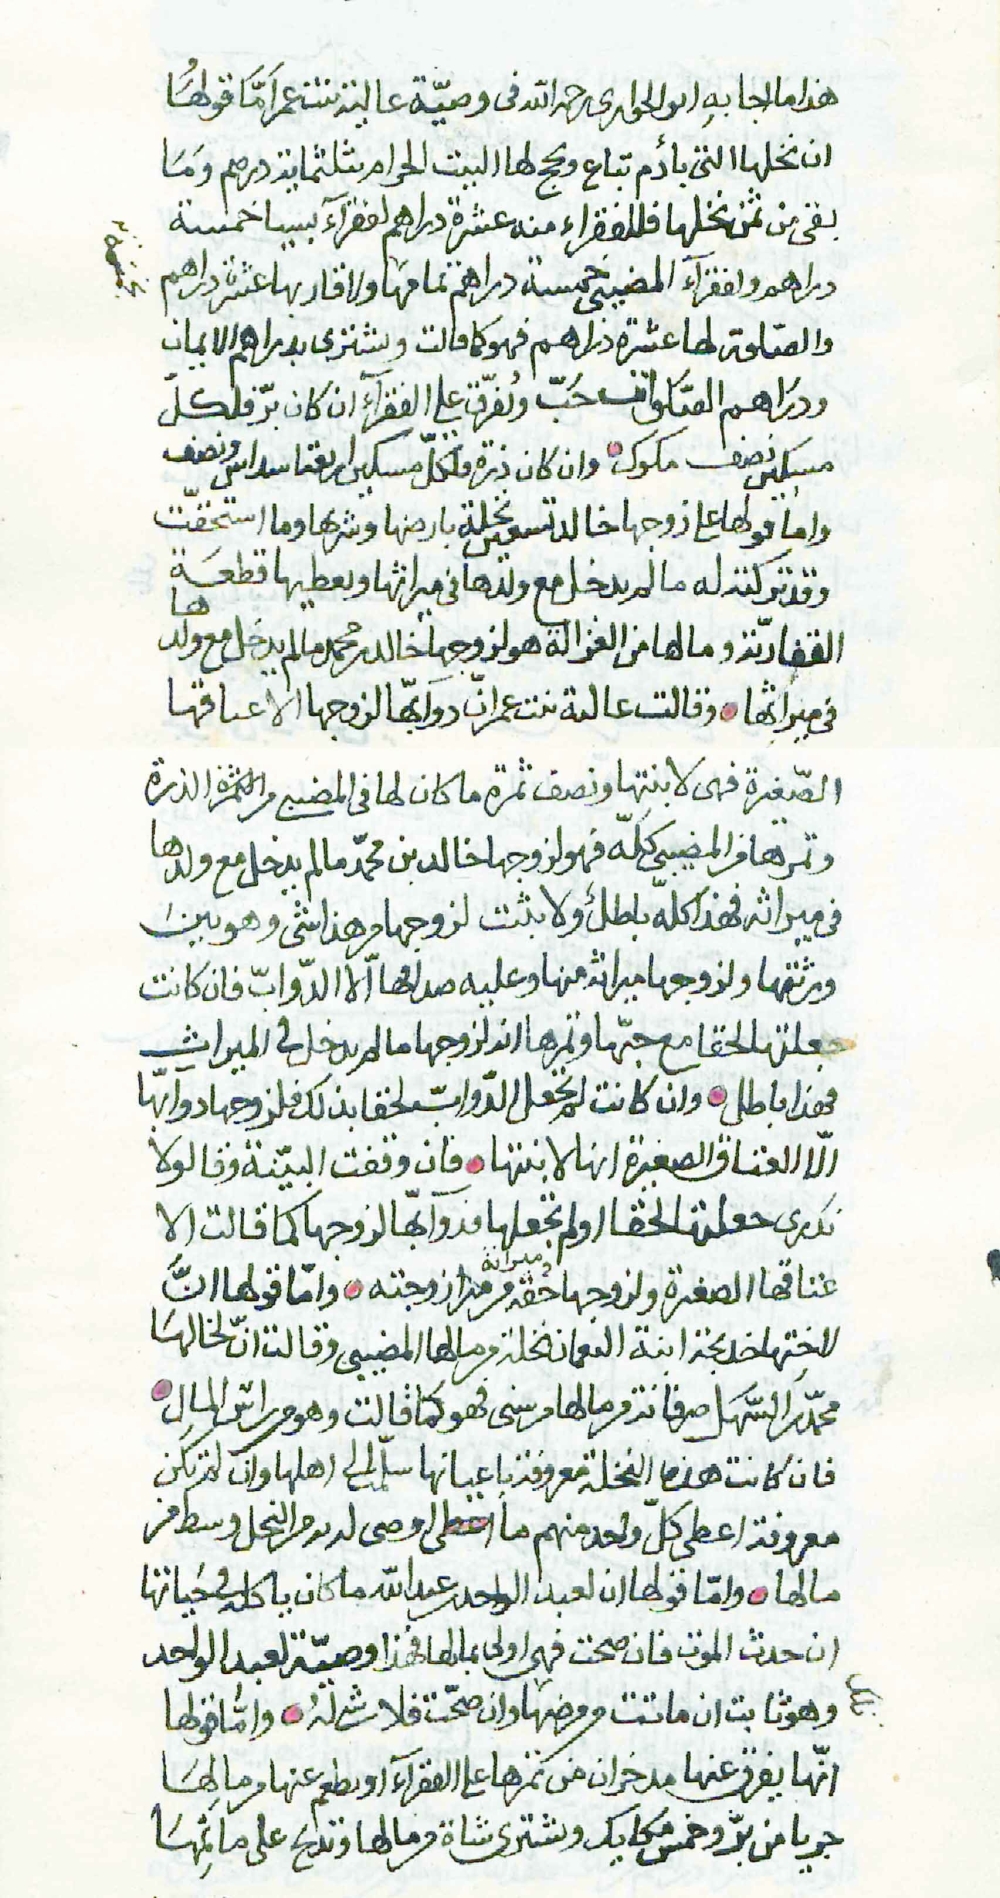 هذا ما اجاب به ابو الحواري رحمه الله في وصيّة عالية بنت عمر امّا قولها
ان نخلها التي بأدم تباع ويحج لها البيت الحرام بثلثمائة درهم وما
بقي من ثمن نخلها فللفقراء منه عشرة دراهم لفقرآء بسيا خمسة
دراهم ولفقرآء المضيبي خمسة دراهم تمامها ولاقاربها عشرة دراهم
والصلوة لها عشرة دراهم فهو كما قالت ويشترى بدراهم الايمان
ودراهم الصلوة حَبّ ويُفرّق على الفقرآء ان كان برّ فلكل
مسكين نصف مكوك وان كان ذرة ولكلّ مسكين اربعة اسداس ونصف
واما قولها على زوجها خالد تسعين نخلة بارضها وشربها وما استحقّت
وقد تركته له ما لم يدخل مع ولدها في ميراثها ويعطيها قطعة
ومالها من الغزالة هو لزوجها خالد بن محمد ما لم يدخل مع ولدها
في ميراثها وقالت عالية بنت عمر انّ دوآبّها لزوجها الا عناقها
الصّغيرة فهي لابنتها ونصف ثمرة ما كان لها في المضيبي من الثمرة الذرة
وتمرها من المضيبي كلّه فهو لزوجها خالد بن محمّد ما لم يدخل مع ولدها
في ميراثه فهذا كلّه باطل ولا يثبت لزوجها من هذا شي وهو بين
ورثتها ولزوجها ميراثه منها وعليه صداقها الّا الدّوابّ فان كانت
جعلتها لحقا مع حبّها وتمرها انه لزوجها ما لم يدخل في الميراث
فهذا باطل وان كانت لم تجعل الدّوابّ لحقا بذلك فلزوجها دوابّها
الّا العناق الصغيرة انها لابنتها فان وقفت البيّنة وقالوا لا
ندري جعلتها لحقا او لم تجعلها فدوآبّها لزوجها كما قالت الا
عناقها الصغيرة ولزوجها حقه وميراثه من زوجته وامّا قولها انّ
لاختها خديجة ابنة النعمان نخلة من مالها المضيبي وقالت انّ لخالها
محمّد بن السّهل صرفانة من مالها من سني فهو كما قالت وهو من راس المال
فان كانت هذه النخلة معروفة باعيانها سلّم الى اهلها وان لم تكن
معروفة اعطي كلّ واحد منهم ما اوصى له به من النخل وسط من
مالها وامّا قولها ان لعبد الواحد بن عبد الله ما كان ياكله في حياتها
ان حدث الموت فان صحت فهي اولى بمالها فهذا وصيّة لعبد الواحد
وهو ثابت ان ماتت من مرضها وان صحّت فلا شي له وامّا قولها
انّها يفرق عنها من تمرها على الفقرآء او يطعم عنها من مالها
جريا من برّ وخمس مكايك ويشترى شاة من مالها وتذبح على ماتمها